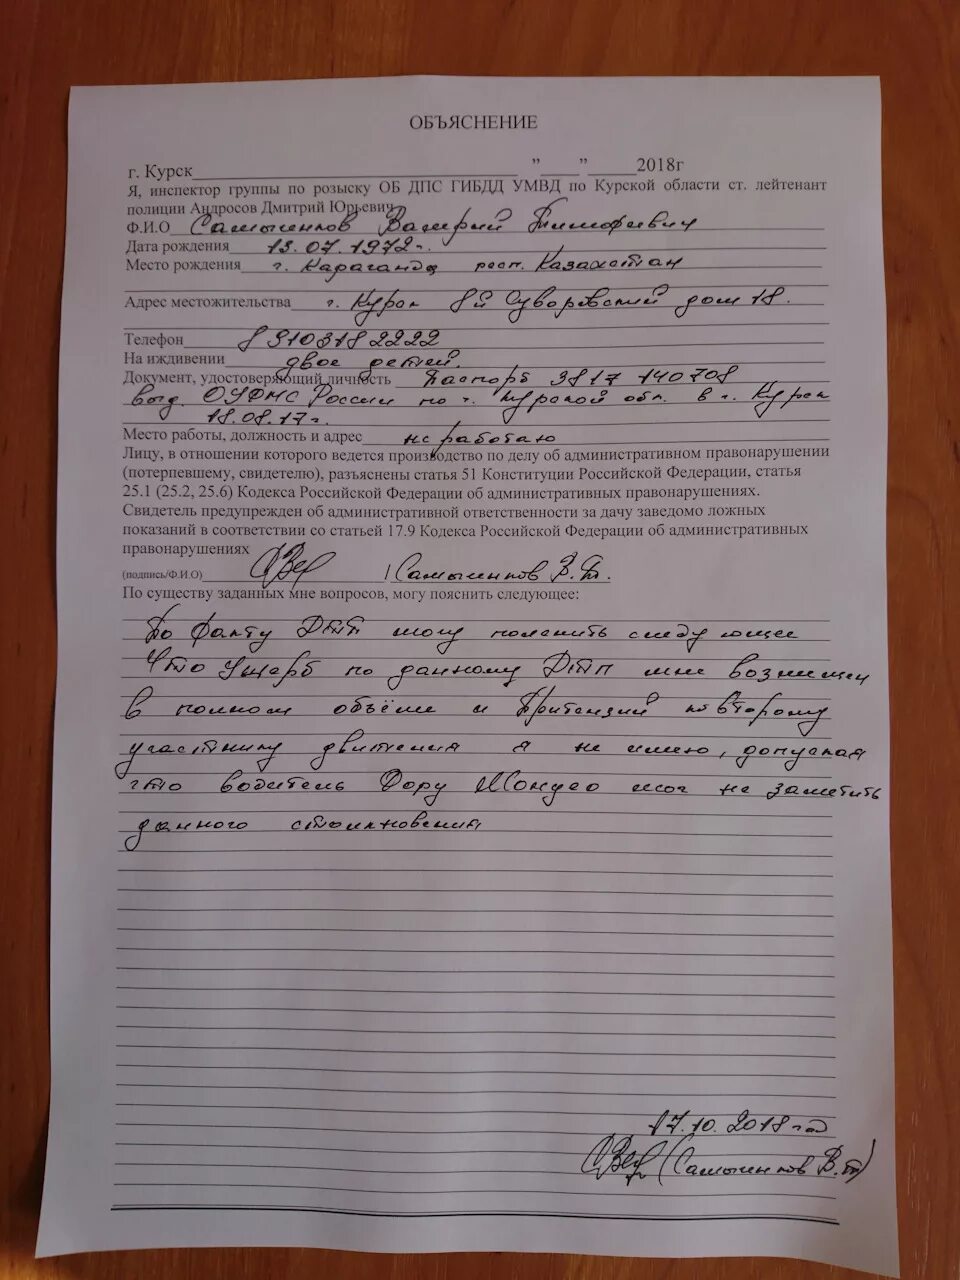 ОБЪЯСНЕНИЕ
г. Курск ” ” 2018г
Я, инспектор группы по розыску ОБ ДПС ГИБДД УМВД по Курской области ст. лейтенант
полиции Андросов Дмитрий Юрьевич
Ф.И.О Самычнков Валерий Тимофевич
Дата рождения 13.07.1972г.
Место рождения г. Караганда респ. Казахстан
Адрес местожительства г. Курск 8й Суворовский дом 18.
Телефон 8 9103182222
На иждивении двое детей.
Документ, удостоверяющий личность Паспорт 3817 140708
выд. ОУФМС России по г. Курской обл. в г. Курск
18.08.17г.
Место работы, должность и адрес не работаю
Лицу, в отношении которого ведется производство по делу об административном правонарушении
(потерпевшему, свидетелю), разъяснены статья 51 Конституции Российской Федерации, статья
25.1 (25.2, 25.6) Кодекса Российской Федерации об административных правонарушениях.
Свидетель предупрежден об административной ответственности за дачу заведомо ложных
показаний в соответствии со статьей 17.9 Кодекса Российской Федерации об административных
правонарушениях
(подпись/Ф.И.О) / В.Т.
По существу заданных мне вопросов, могу пояснить следующее:
По факту ДТП могу пояснить следующее
Что Ущерб по данному ДТП мне возмещен
в полном объёме и Притензий ко второму
участнику движения я не имею, допуская
что водитель Дору могла не заметить
данного столкновения
17.10.2018 год
( В.Т)